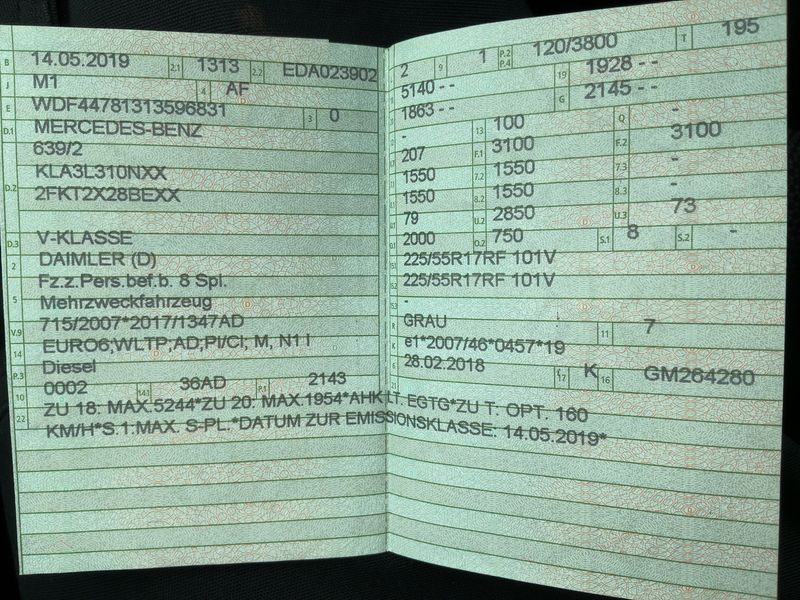 B 14.05.2019 2.1 1313 2.2 EDA023902
J M1 4 AF
E WDF44781313596831 3 0
D.1 MERCEDES-BENZ
639/2
D.2 KLA3L310NXX
2FKT2X28BEXX
D.3 V-KLASSE
2 DAIMLER (D)
5 Fz.z.Pers.bef.b. 8 Spl.
Mehrzweckfahrzeug
V.9 715/2007*2017/1347AD
14 EURO6;WLTP;AD;PI/CI; M, N1 I
P.3 Diesel
10 0002 14.1 36AD P.1 2143
22 ZU 18: MAX.5244*ZU 20: MAX.1954*AHK LT. EGTG*ZU T: OPT. 160
KM/H*S.1:MAX. S-PL.*DATUM ZUR EMISSIONSKLASSE: 14.05.2019*
2 9 1 P.2 P.4 120/3800 T 195
5140 - - 19 1928 - -
1863 - - G 2145 - -
- 13 100 Q -
207 F.1 3100 F.2 3100
1550 7.2 1550 7.3 -
1550 8.2 1550 8.3 -
79 U.2 2850 U.3 73
2000 O.2 750 S.1 8 S.2 -
225/55R17RF 101V
225/55R17RF 101V
-
R GRAU 11 7
K e1*2007/46*0457*19
6 28.02.2018 17 K 16 GM264280
21